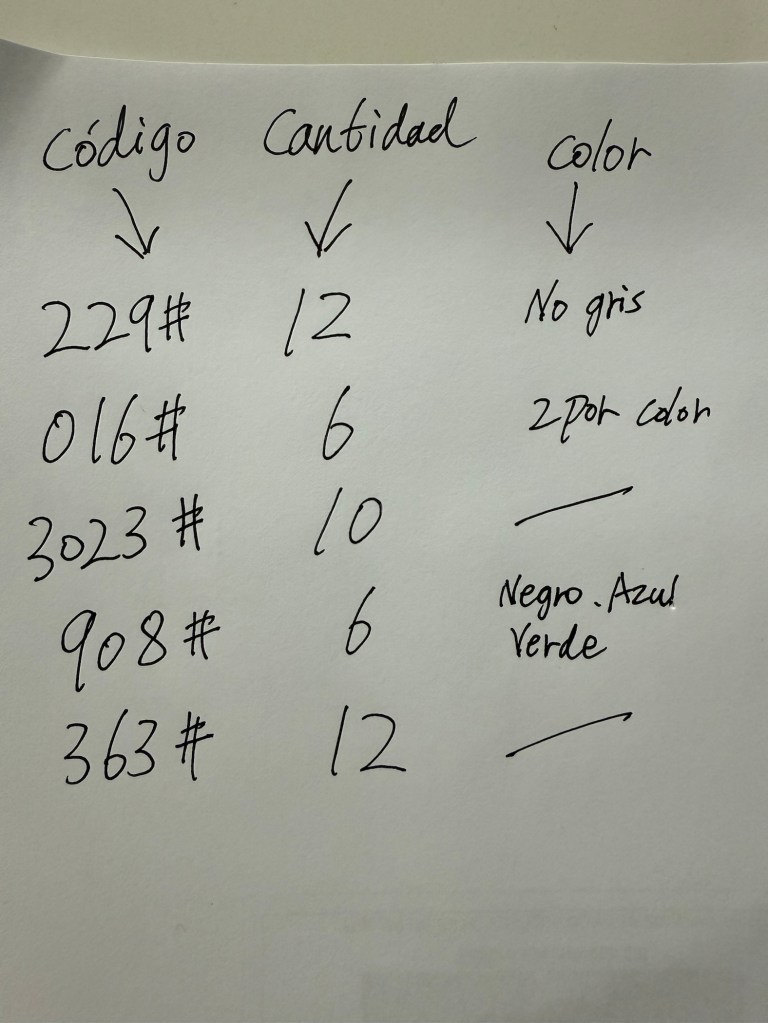 Código Cantidad Color
229# 12 No gris
016# 6 2 por color
3023# 10 —
908# 6 Negro. Azul
Verde
363# 12 —